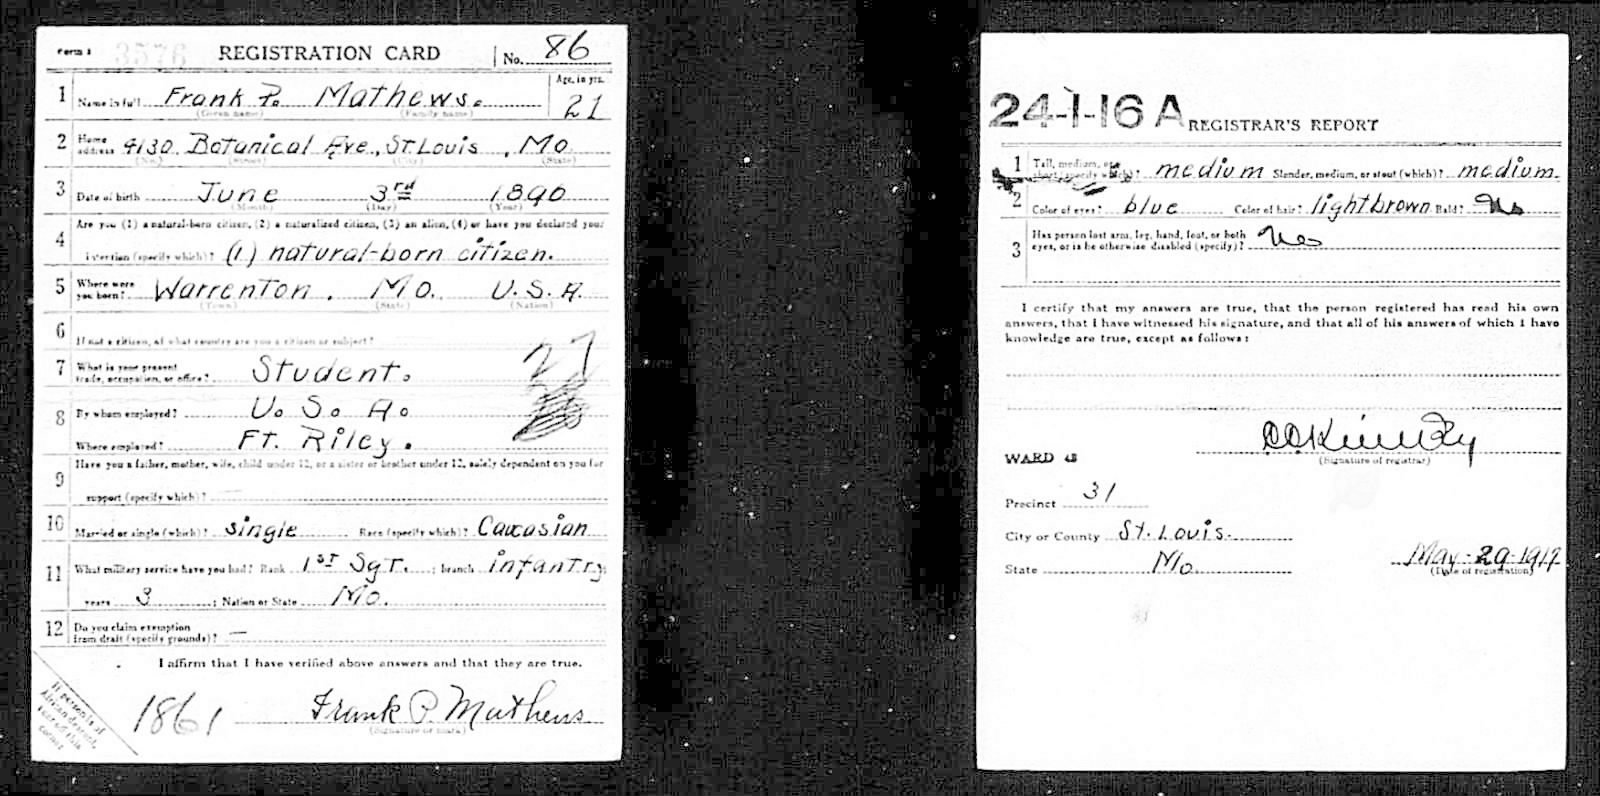 Form 1 3576 REGISTRATION CARD No. 86
1 Name in full Frank P. Mathews. Age, in yrs. 21
(Given name) (Family name)
2 Home address 4130 Botanical Ave., St Louis, Mo
(No.) (Street) (City) (State)
3 Date of birth June 3rd 1890
(Month) (Day) (Year)
4 Are you (1) a natural-born citizen, (2) a naturalized citizen, (3) an alien, (4) or have you declared your
intention (specify which)? (1) natural-born citizen.
5 Where were you born? Warrenton, Mo. U.S.A.
(Town) (State) (Nation)
6 If not a citizen, of what country are you a citizen or subject?
7 What is your present trade, occupation, or office? Student. 27
8 By whom employed? U. S. A.
Where employed? Ft. Riley.
9 Have you a father, mother, wife, child under 12, or a sister or brother under 12, solely dependent on you for
support (specify which)? —
10 Married or single (which)? single Race (specify which)? Caucasian
11 What military service have you had? Rank 1st Sgt. ; branch infantry;
years 3 ; Nation or State Mo.
12 Do you claim exemption from draft (specify grounds)? —
I affirm that I have verified above answers and that they are true.
1861 Frank P Mathews
(Signature or mark)
If person is of
African descent,
tear off this
corner
24-1-16 A REGISTRAR'S REPORT
1 Tall, medium, or short (specify which)? medium Slender, medium, or stout (which)? medium.
2 Color of eyes? blue Color of hair? light brown Bald? No
3 Has person lost arm, leg, hand, foot, or both
eyes, or is he otherwise disabled (specify)? No
I certify that my answers are true, that the person registered has read his own
answers, that I have witnessed his signature, and that all of his answers of which I have
knowledge are true, except as follows:
(Signature of registrar)
WARD 43
Precinct 31
City or County St. Louis.
State Mo. May-29-1917
(Date of registration)